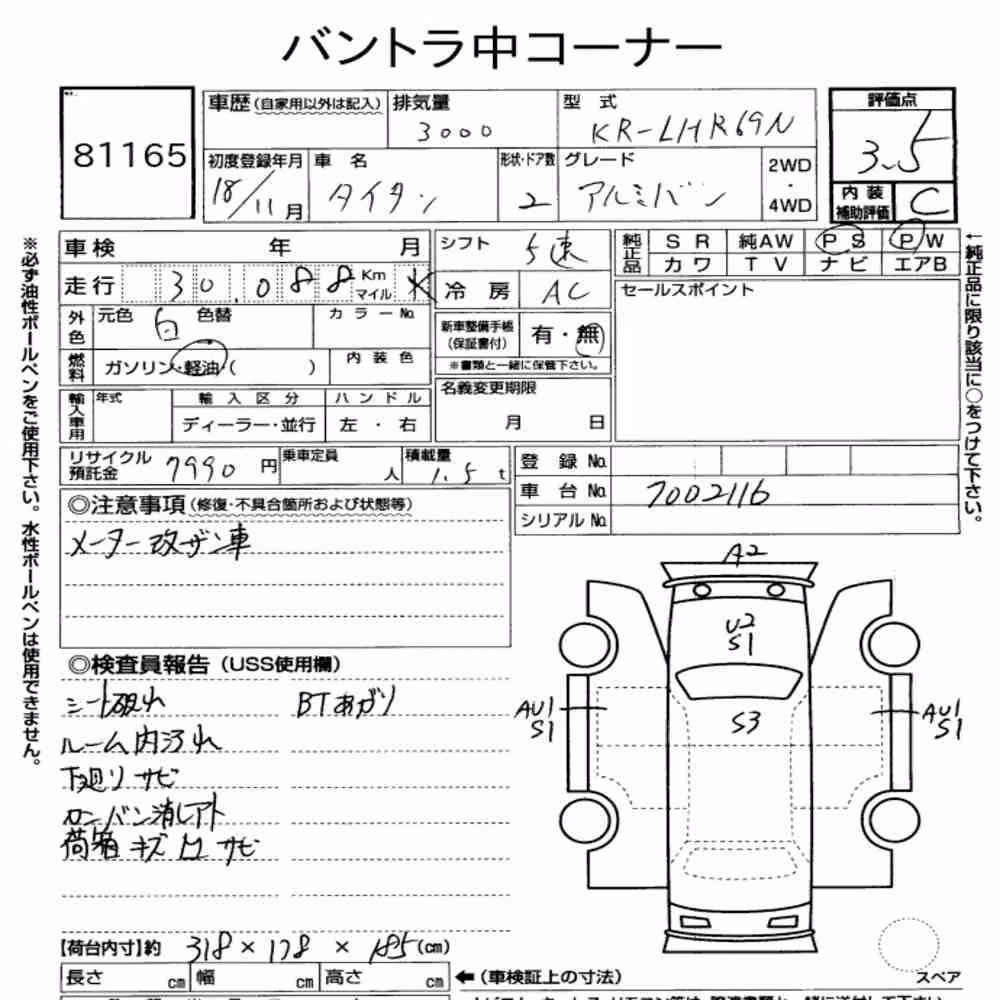 バントラ中コーナー
81165
車歴(自家用以外は記入)
排気量
3000
型 式
KR-LHR69N
評価点
3.5
初度登録年月
18/11月
車 名
タイタン
形状・ドア数
2
グレード
アルミバン
2WD
・
4WD
内 装
補助評価
C
※必ず油性ボールペンをご使用下さい。水性ボールペンは使用できません。
車検 年 月
走行 30.088 Km
マイル
外色
元色 白 色替
カラーNo.
燃料
ガソリン・軽油( )
内 装 色
輸入車用
年式
輸 入 区 分
ディーラー・並行
ハ ン ド ル
左 ・ 右
シフト
5速
冷 房
AC
新車整備手帳
(保証書付)
有・無
※書類と一緒に保管下さい。
名義変更期限
月 日
純正品
S R
純AW
P S
P W
カ ワ
T V
ナ ビ
エアB
セールスポイント
←純正品に限り該当に○をつけて下さい。
リサイクル
預託金
7990 円
乗車定員
人
積載量
1.5 t
登 録 No.
車 台 No.
7002116
シリアル No.
◎注意事項(修復・不具合箇所および状態等)
メーター改ザン車
◎検査員報告(USS使用欄)
シート破れ
BTあがり
ルーム内汚れ
下廻りサビ
ロンバン消しアト
荷箱 キズ 凹 サビ
A2
U2
S1
S3
AU1
S1
AU1
S1
【荷台内寸】約 318 × 178 × 185 (cm)
長さ cm
幅 cm
高さ cm
←(車検証上の寸法)
スペア